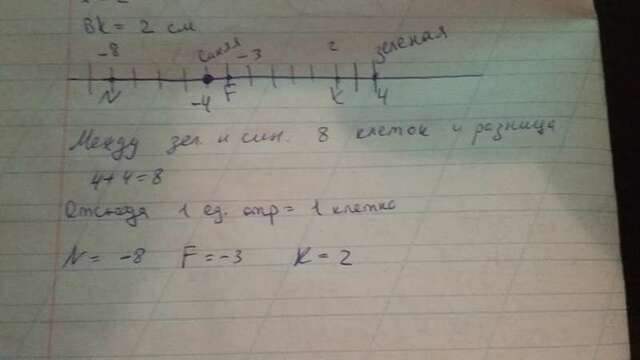 BK = 2 см
-8 синяя -3 2 зеленая
N -4 F K 4
Между зел. и син. 8 клеток и разница
4+4=8
Отсюда 1 ед. отр = 1 клетка
N = -8 F = -3 K = 2